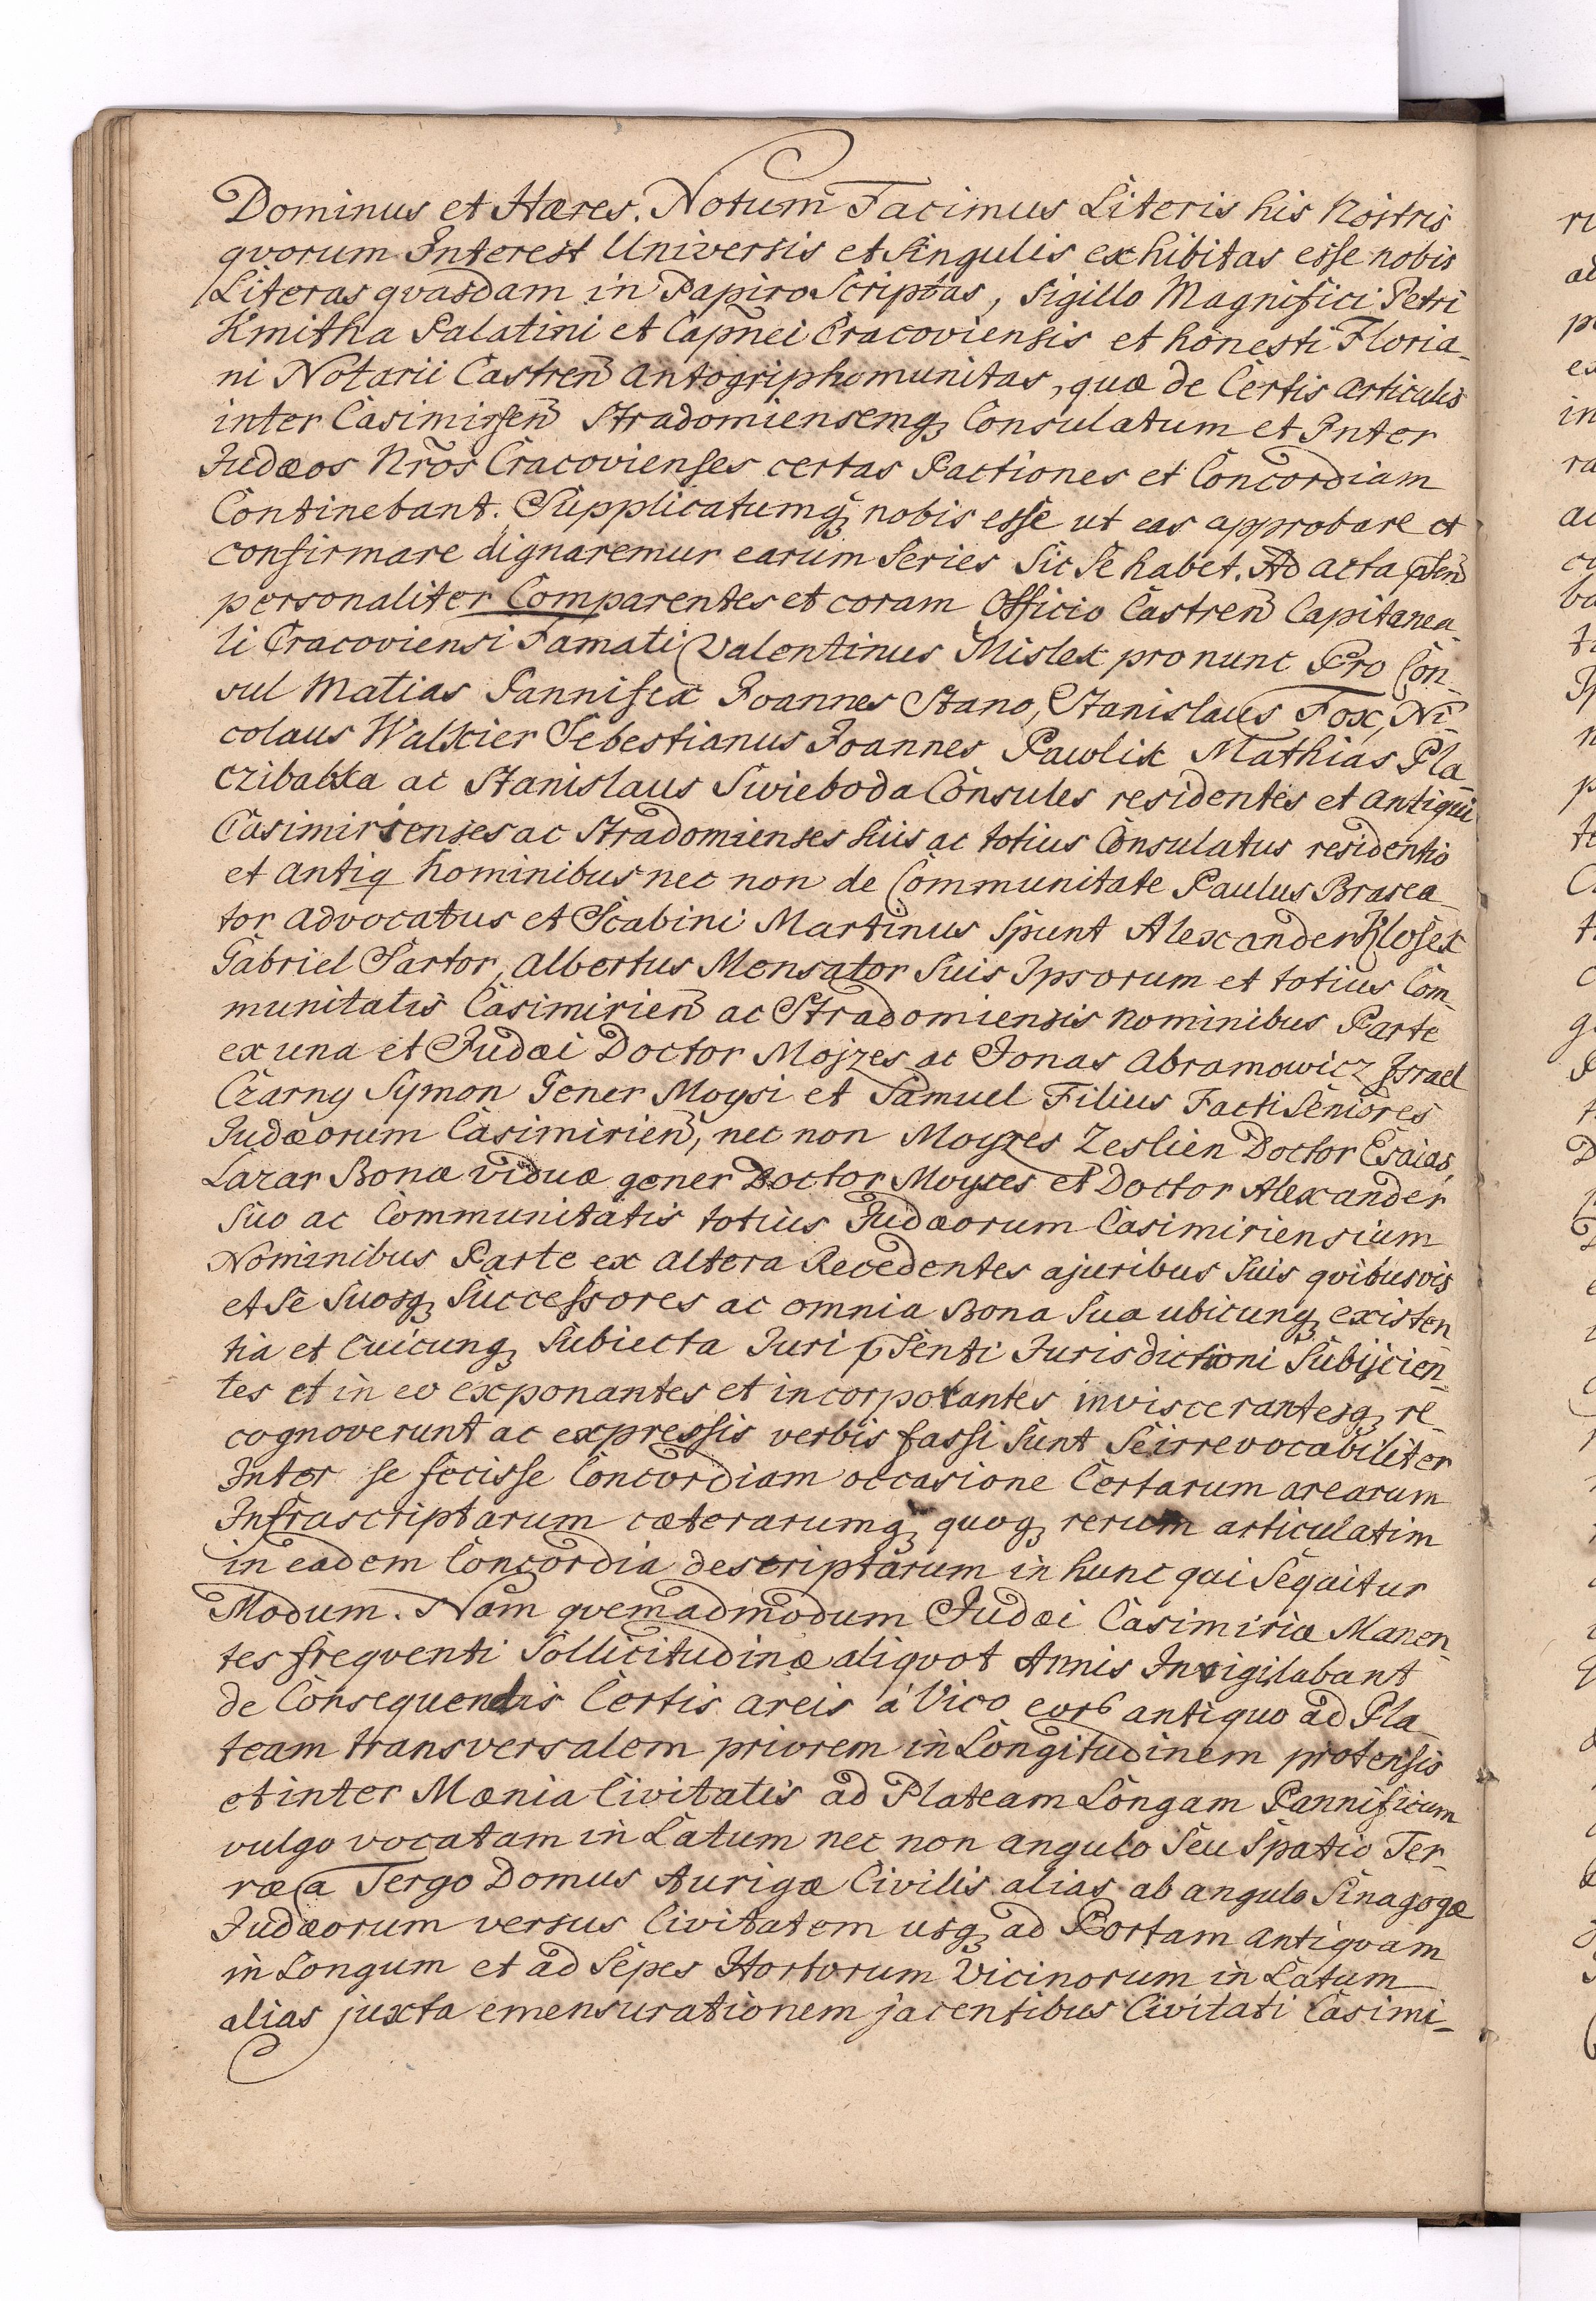 Dominus et Hæres. Notum Facimus Literis his Nostris
qvorum Interest Universis et Singulis exhibitas esse nobis
Literas qvasdam in Papiro Scriptas, Sigillo Magnifici Petri
Kmitha Palatini et Capnei Cracoviensis et honesti Floria-
ni Notarii Castren̄ antogriphomunitas, quæ de Certis articulis
inter Casimirien̄ Stradomiensemq₃ Consulatum et Inter
Judæos Nr̄os Cracovienses certas Pactiones et Concordiam
Continebant. Supplicatumq₃ nobis esse ut eas approbare et
confirmare dignaremur earum Series Sic Se habet. Ad acta pSen̄
personaliter Comparentes et coram Officio Castren̄ Capitanea-
li Cracoviensi Famati Valentinus Mislek pro nunc Pro Con-
sul Matias Pannifex Joannes Stano, Stanislaus Fox, Ni-
colaus Walkier Sebestianus Joannes Pawlik Mathias Pla
czibabka ac Stanislaus Swieboda Consules residentes et Antiqui
Casimirienses ac Stradomienses suis ac totius Consulatus residentis
et antiq hominibus nec non de Communitate Paulus Brasea-
tor advocatus et Scabini Martinus Spunt Alexander Klosek
Gabriel Sartor, Albertus Mensator Suis Ipsorum et totius Com-
munitatis Casimirien̄ ac Stradomiensis nominibus Parte
ex una et Judæi Doctor Mojzes ac Jonas Abramowicz Israel
Czarny Symon Gener Moysi et Samuel Filius Facti Seniores
Judæorum Casimirien̄, nec non Moyzes Zeslien Doctor Esaias,
Lazar Bonæ viduæ gener Doctor Moyses et Doctor Alexander
Suo ac Communitatis totius Judæorum Casimiriensium
Nominibus Parte ex altera Recedentes ajuribus Suis qvibusvis
et Se Suosq₃ Successores ac omnia Bona Sua ubicunq₃ existen
tia et Cuicunq₃ Subiecta Juri pSenti Jurisdictioni Subijcien-
tes et in eo exponantes et incorporantes inviscerantesq₃ re
cognoverunt ac expressis verbis fassi Sunt Se irrevocabiliter
Inter se fecisse Concordiam occasione Certarum arearum
Infrascriptarum cæterarumq₃ quoq₃ rerum articulatim
in eadem Concordia descriptarum in hunc qui Sequitur
Modum. Nam qvemadmodum Judæi Casimiriæ Manen-
tes freqventi Sollicitudinæ aliqvot Annis Invigilabant
de Consequendis Certis areis á Vico eor6 antiquo ad Pla
team transversalem priorem in Longitudinem protensis
et inter Mænia Civitatis ad Plateam Longam Pannificum
vulgo vocatam in Latum nec non angulo Seu Spatio Ter-
ræ a Tergo Domus Aurigæ Civilis alias ab angulo Sinagogæ
Judæorum versus Civitatem usq₃ ad Portam antiqvam
in Longum et ad Sepes Hortorum Vicinorum in Latum
alias juxta emensurationem jacentibus Civitati Casimi-